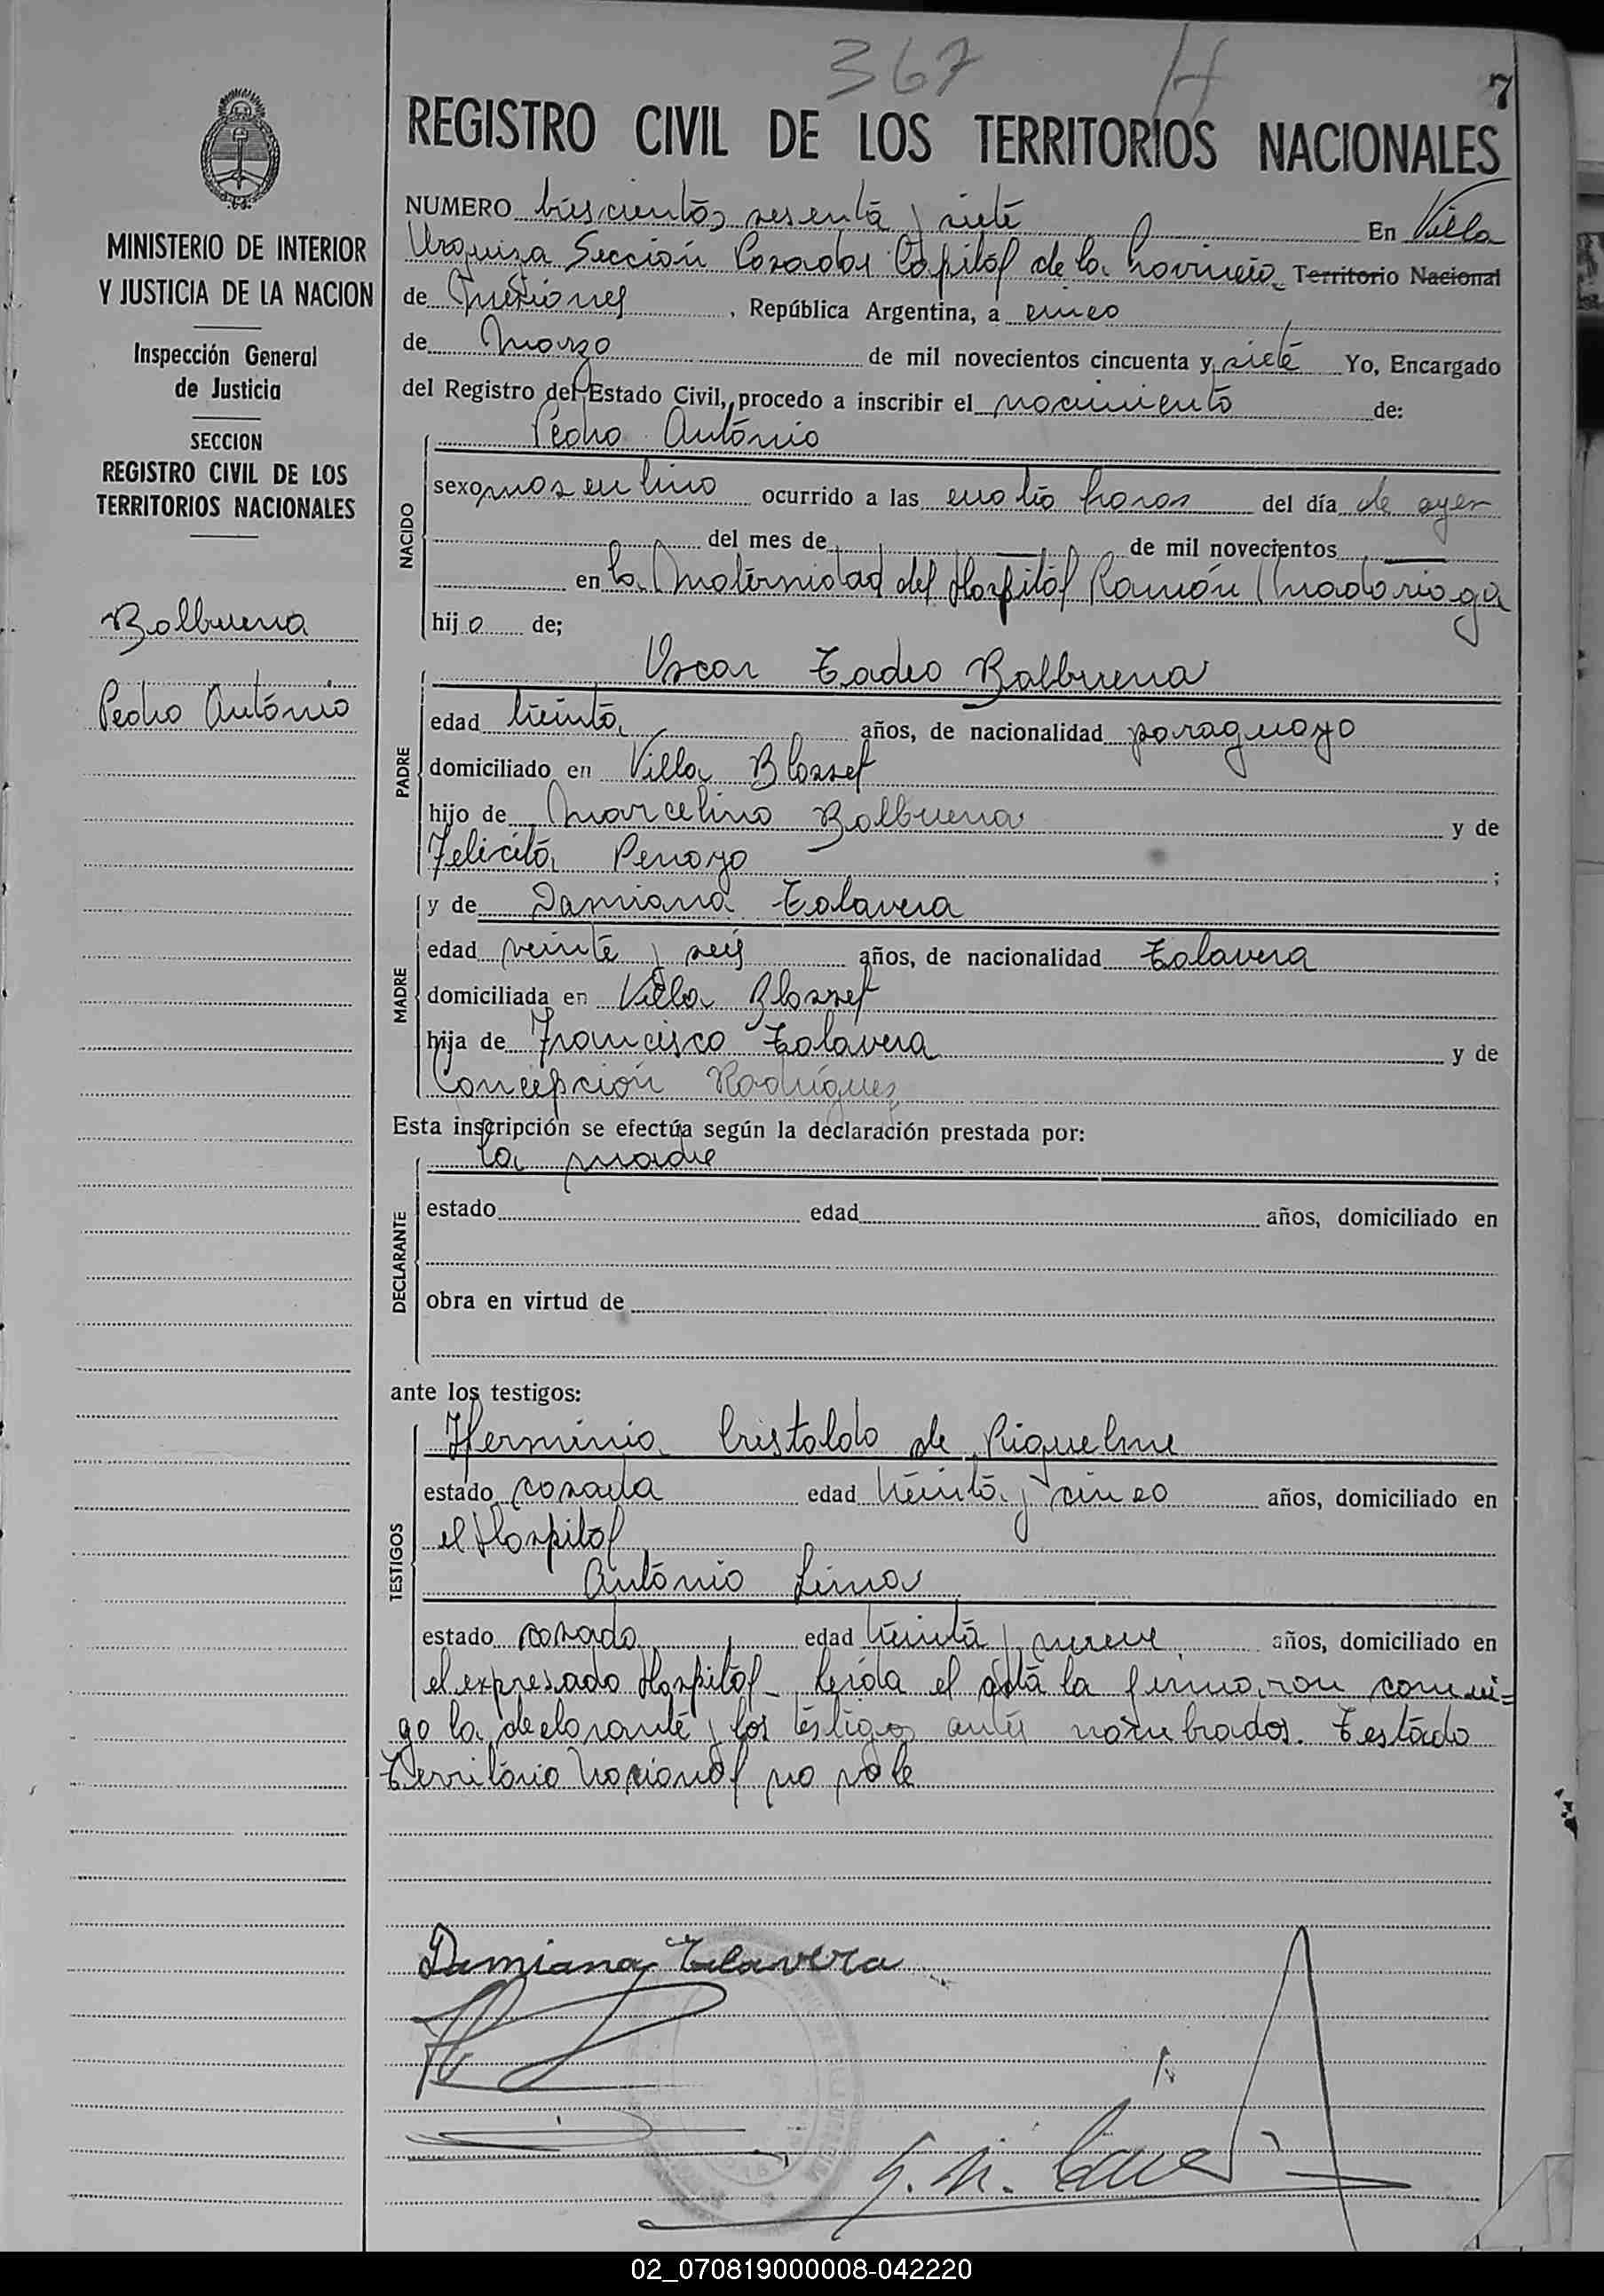 367 H 7
REGISTRO CIVIL DE LOS TERRITORIOS NACIONALES
MINISTERIO DE INTERIOR
Y JUSTICIA DE LA NACION
Inspección General
de Justicia
SECCION
REGISTRO CIVIL DE LOS
TERRITORIOS NACIONALES
Balbuena
Pedro Antonio
NUMERO trescientos sesenta y siete En Villa
Urquiza Sección Posadas Capital de la Provincia Territorio Nacional
de Misiones, República Argentina, a cinco
de Marzo de mil novecientos cincuenta y siete Yo, Encargado
del Registro del Estado Civil, procedo a inscribir el nacimiento de:
NACIDO
Pedro Antonio
sexo masculino ocurrido a las cuatro horas del día de ayer
del mes de de mil novecientos
en la Maternidad del Hospital Ramón Madariaga
hijo de;
PADRE
Oscar Tadeo Balbuena
edad treinta años, de nacionalidad paraguayo
domiciliado en Villa Blosset
hijo de Marcelino Balbuena y de
Felicita Penayo ;
MADRE
y de Damiana Talavera
edad veinte y seis años, de nacionalidad Talavera
domiciliada en Villa Blosset
hija de Francisco Talavera y de
Concepción Rodríguez
Esta inscripción se efectúa según la declaración prestada por:
DECLARANTE
la madre
estado edad años, domiciliado en
obra en virtud de
ante los testigos:
TESTIGOS
Herminia Cristaldo de Riquelme
estado casada edad treinta y cinco años, domiciliado en
el Hospital
Antonio Lima
estado casado edad treinta y nueve años, domiciliado en
el expresado Hospital - Leida el acta la firmaron conmi=
go la declarante y los testigos antes nombrados. Testado
Territorio Nacional no vale
Damiana Talavera
02_070819000008-042220